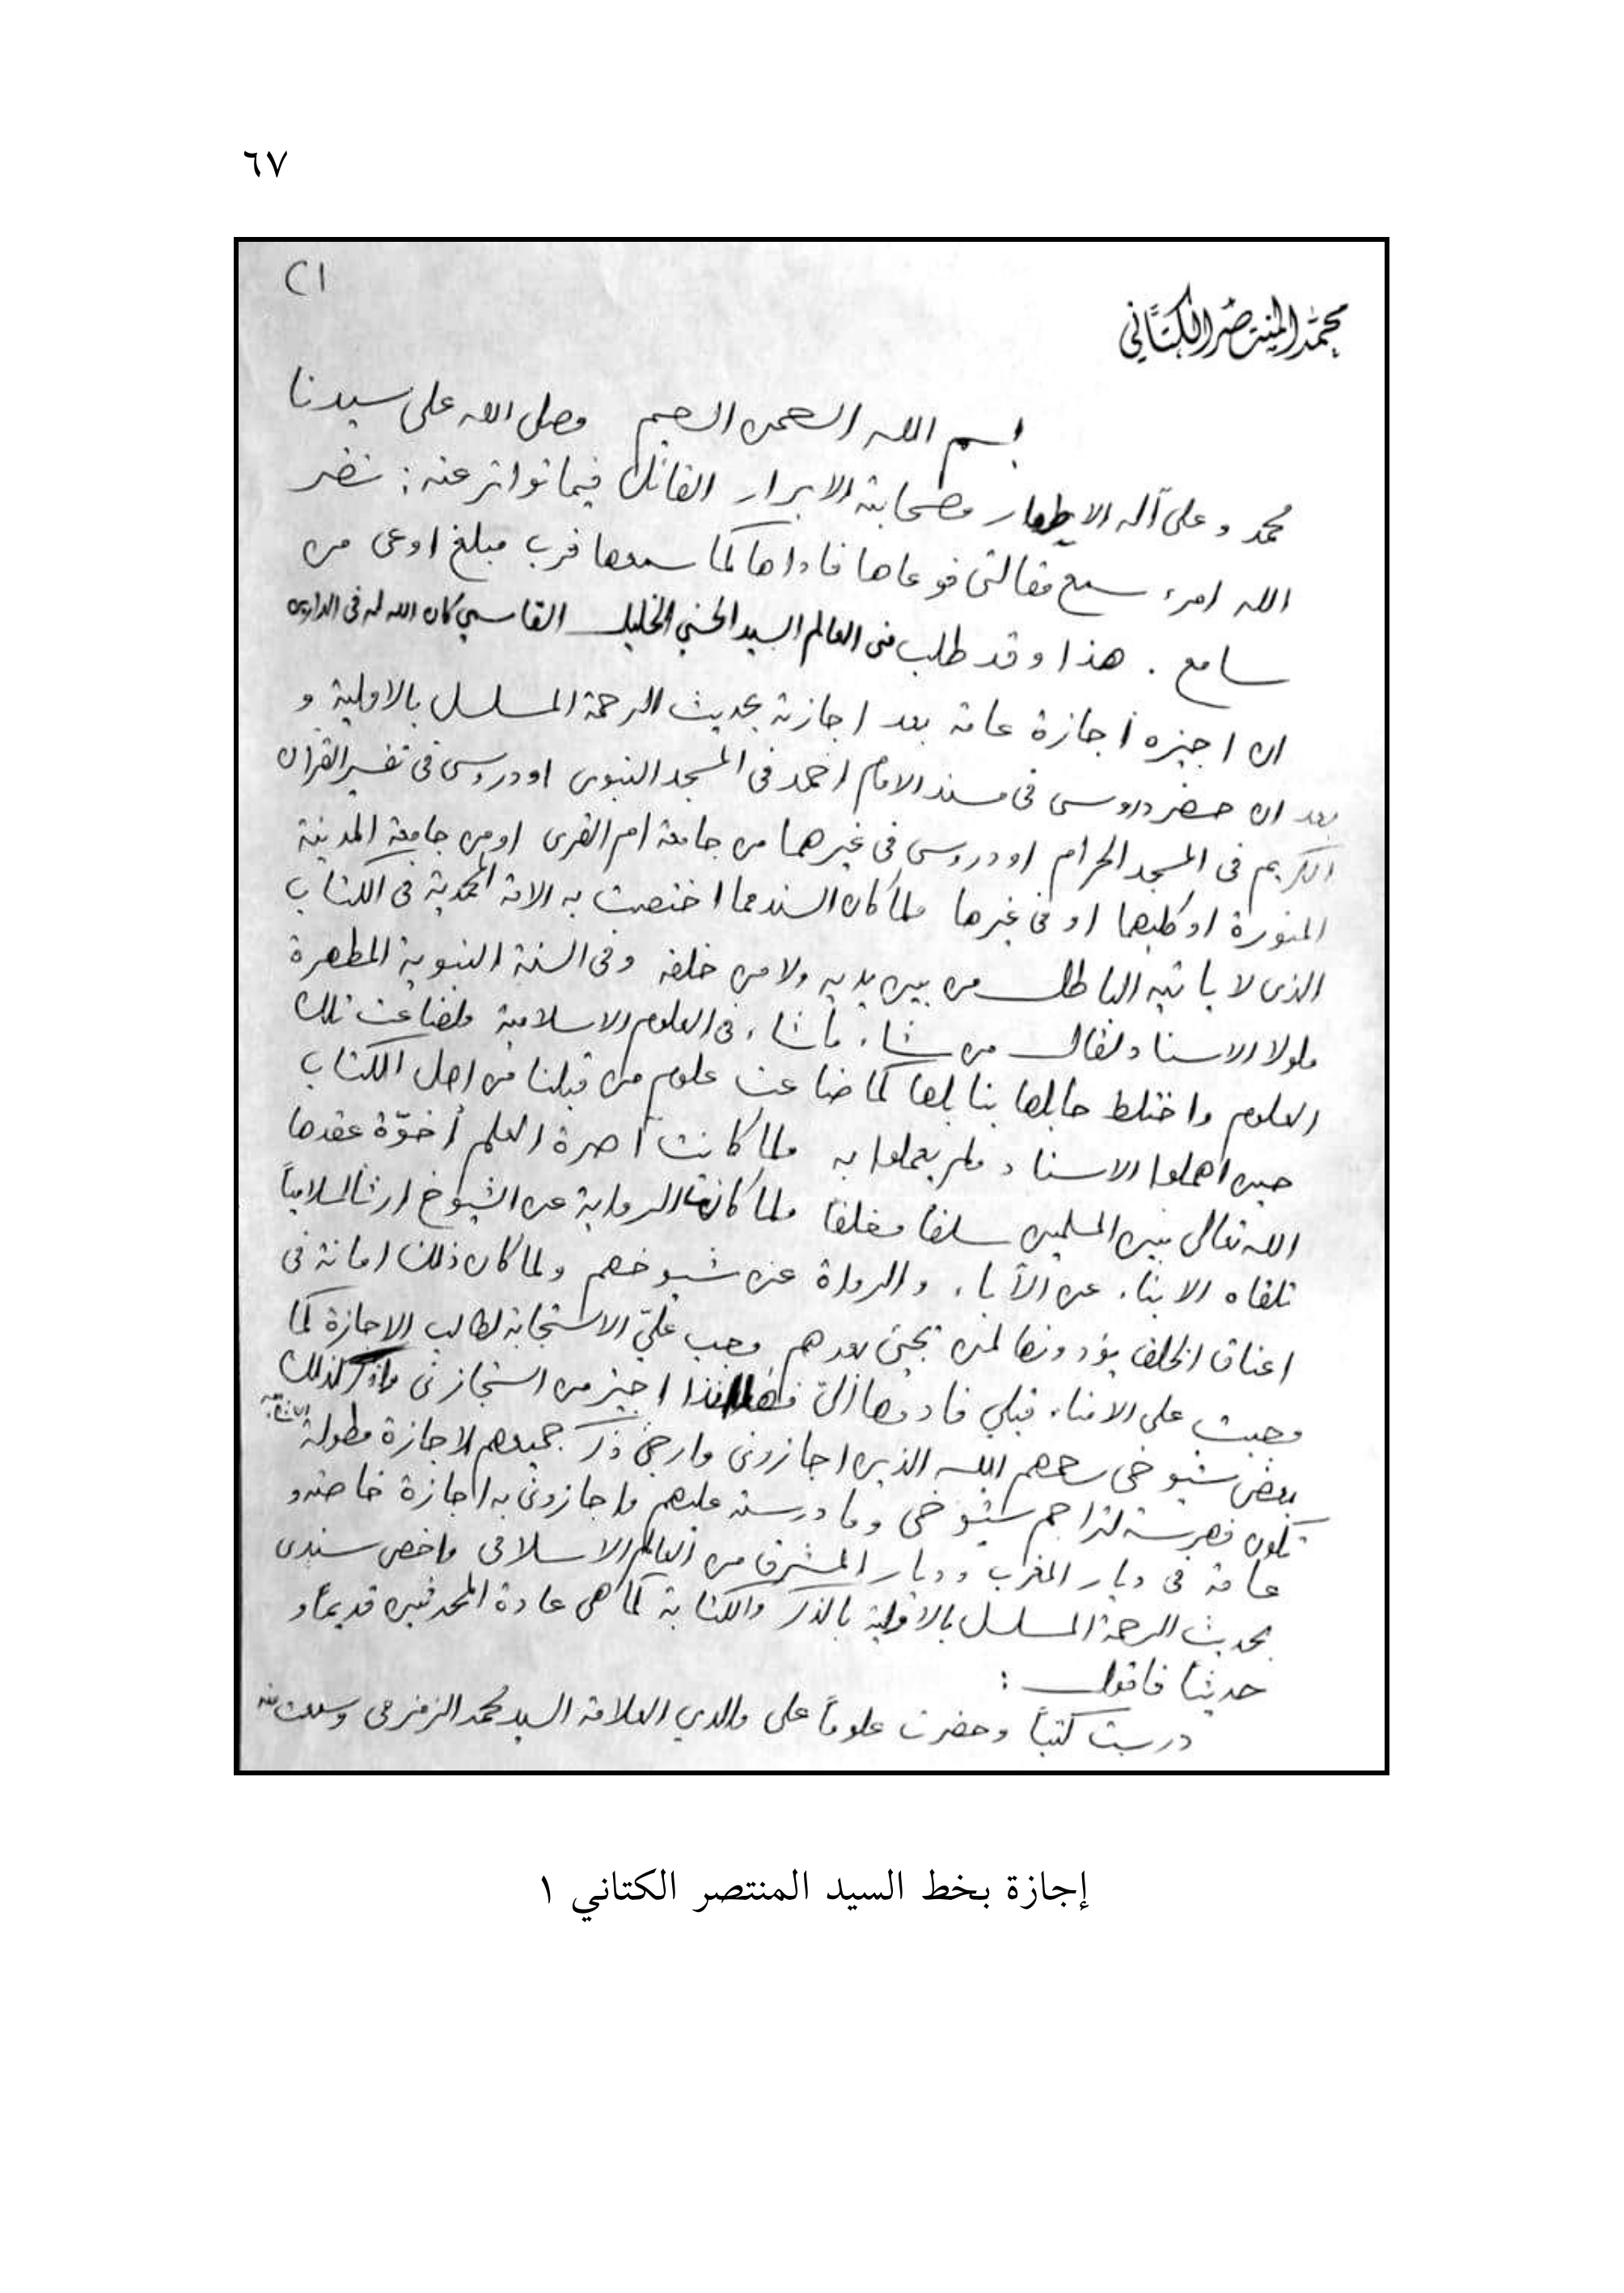 ٦٧
١)
محمد المنتصر الكتاني
بسم الله الرحمن الرحيم وصلى الله على سيدنا
محمد وعلى آله الاطهار وصحابته الابرار القائل فيما تواتر عنه: نضر
الله امرء سمع مقالتى فوعاها فاداها كما سمعها فرب مبلغ اوعى من
سامع . هذا وقد طلب منى العالم السيد الحسني الخليل القاسمي كان الله له فى الدارين
ان اجيزه أجازة عامة بعد اجازته بحديث الرحمة المسلسل بالاولية و
بعد ان حضر دروسى فى مسند الامام احمد فى المسجد النبوى او دروسى فى تفسير القرآن
الكريم فى المسجد الحرام او دروسى فى غيرهما من جامعة ام القرى او من جامعة المدينة
المنورة او كليهما او فى غيرها ولما كان السند مما اختصت به الامة المحمدية فى الكتاب
الذى لا ياتيه الباطل من بين يديه ولا من خلفه وفى السنة النبوية المطهرة
ولولا الاسناد لقال من شاء ما شاء فى العلوم الاسلامية ولضاعت تلك
العلوم واختلط حابلها بنابلها كما ضاعت علوم من قبلنا من اهل الكتاب
حين اهملوا الاسناد ولم يعملوا به ولما كانت آصرة العلم أخوّة عقدها
الله تعالى بين المسلمين سلفا وخلفا ولما كانت الرواية عن الشيوخ ارثا اسلامياً
تلقاه الابناء عن الآباء والرواة عن شيوخهم ولما كان ذلك امانة فى
اعناق الخلف يؤدونها لمن يجئ بعدهم وجب عليّ الاستجابة لطالب الاجازة كما
وجبت على الامناء قبلي فادوها إليّ فلهذا اجيز من استجازنى واذكر كذلك
بعض شيوخى رحمهم الله الذين اجازونى وارجئ ذكر جميعهم لاجازة مطولة
تكون فهرسة لتراجم شيوخى وما درسته عليهم واجازونى به اجازة خاصة و
عامة فى ديار المغرب وديار المشرق من العالم الاسلامى واخص سندى
بحديث الرحمة المسلسل بالاولية بالذكر والكتابة كما هى عادة المحدثين قديماً و
حديثاً فاقول :
درست كتباً وحضرت علوماً على والدي العلامة السيد محمد الزمزمى وسمعت منه
إجازة بخط السيد المنتصر الكتاني ١